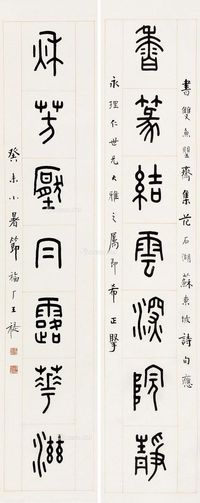 書雙魚罌齋集范石湖蘇東坡詩句應
香篆結雲深院靜
永理仁世兄大雅之屬即希正擘
秋芳壓冃露華滋
癸未小暑節福厂王禔